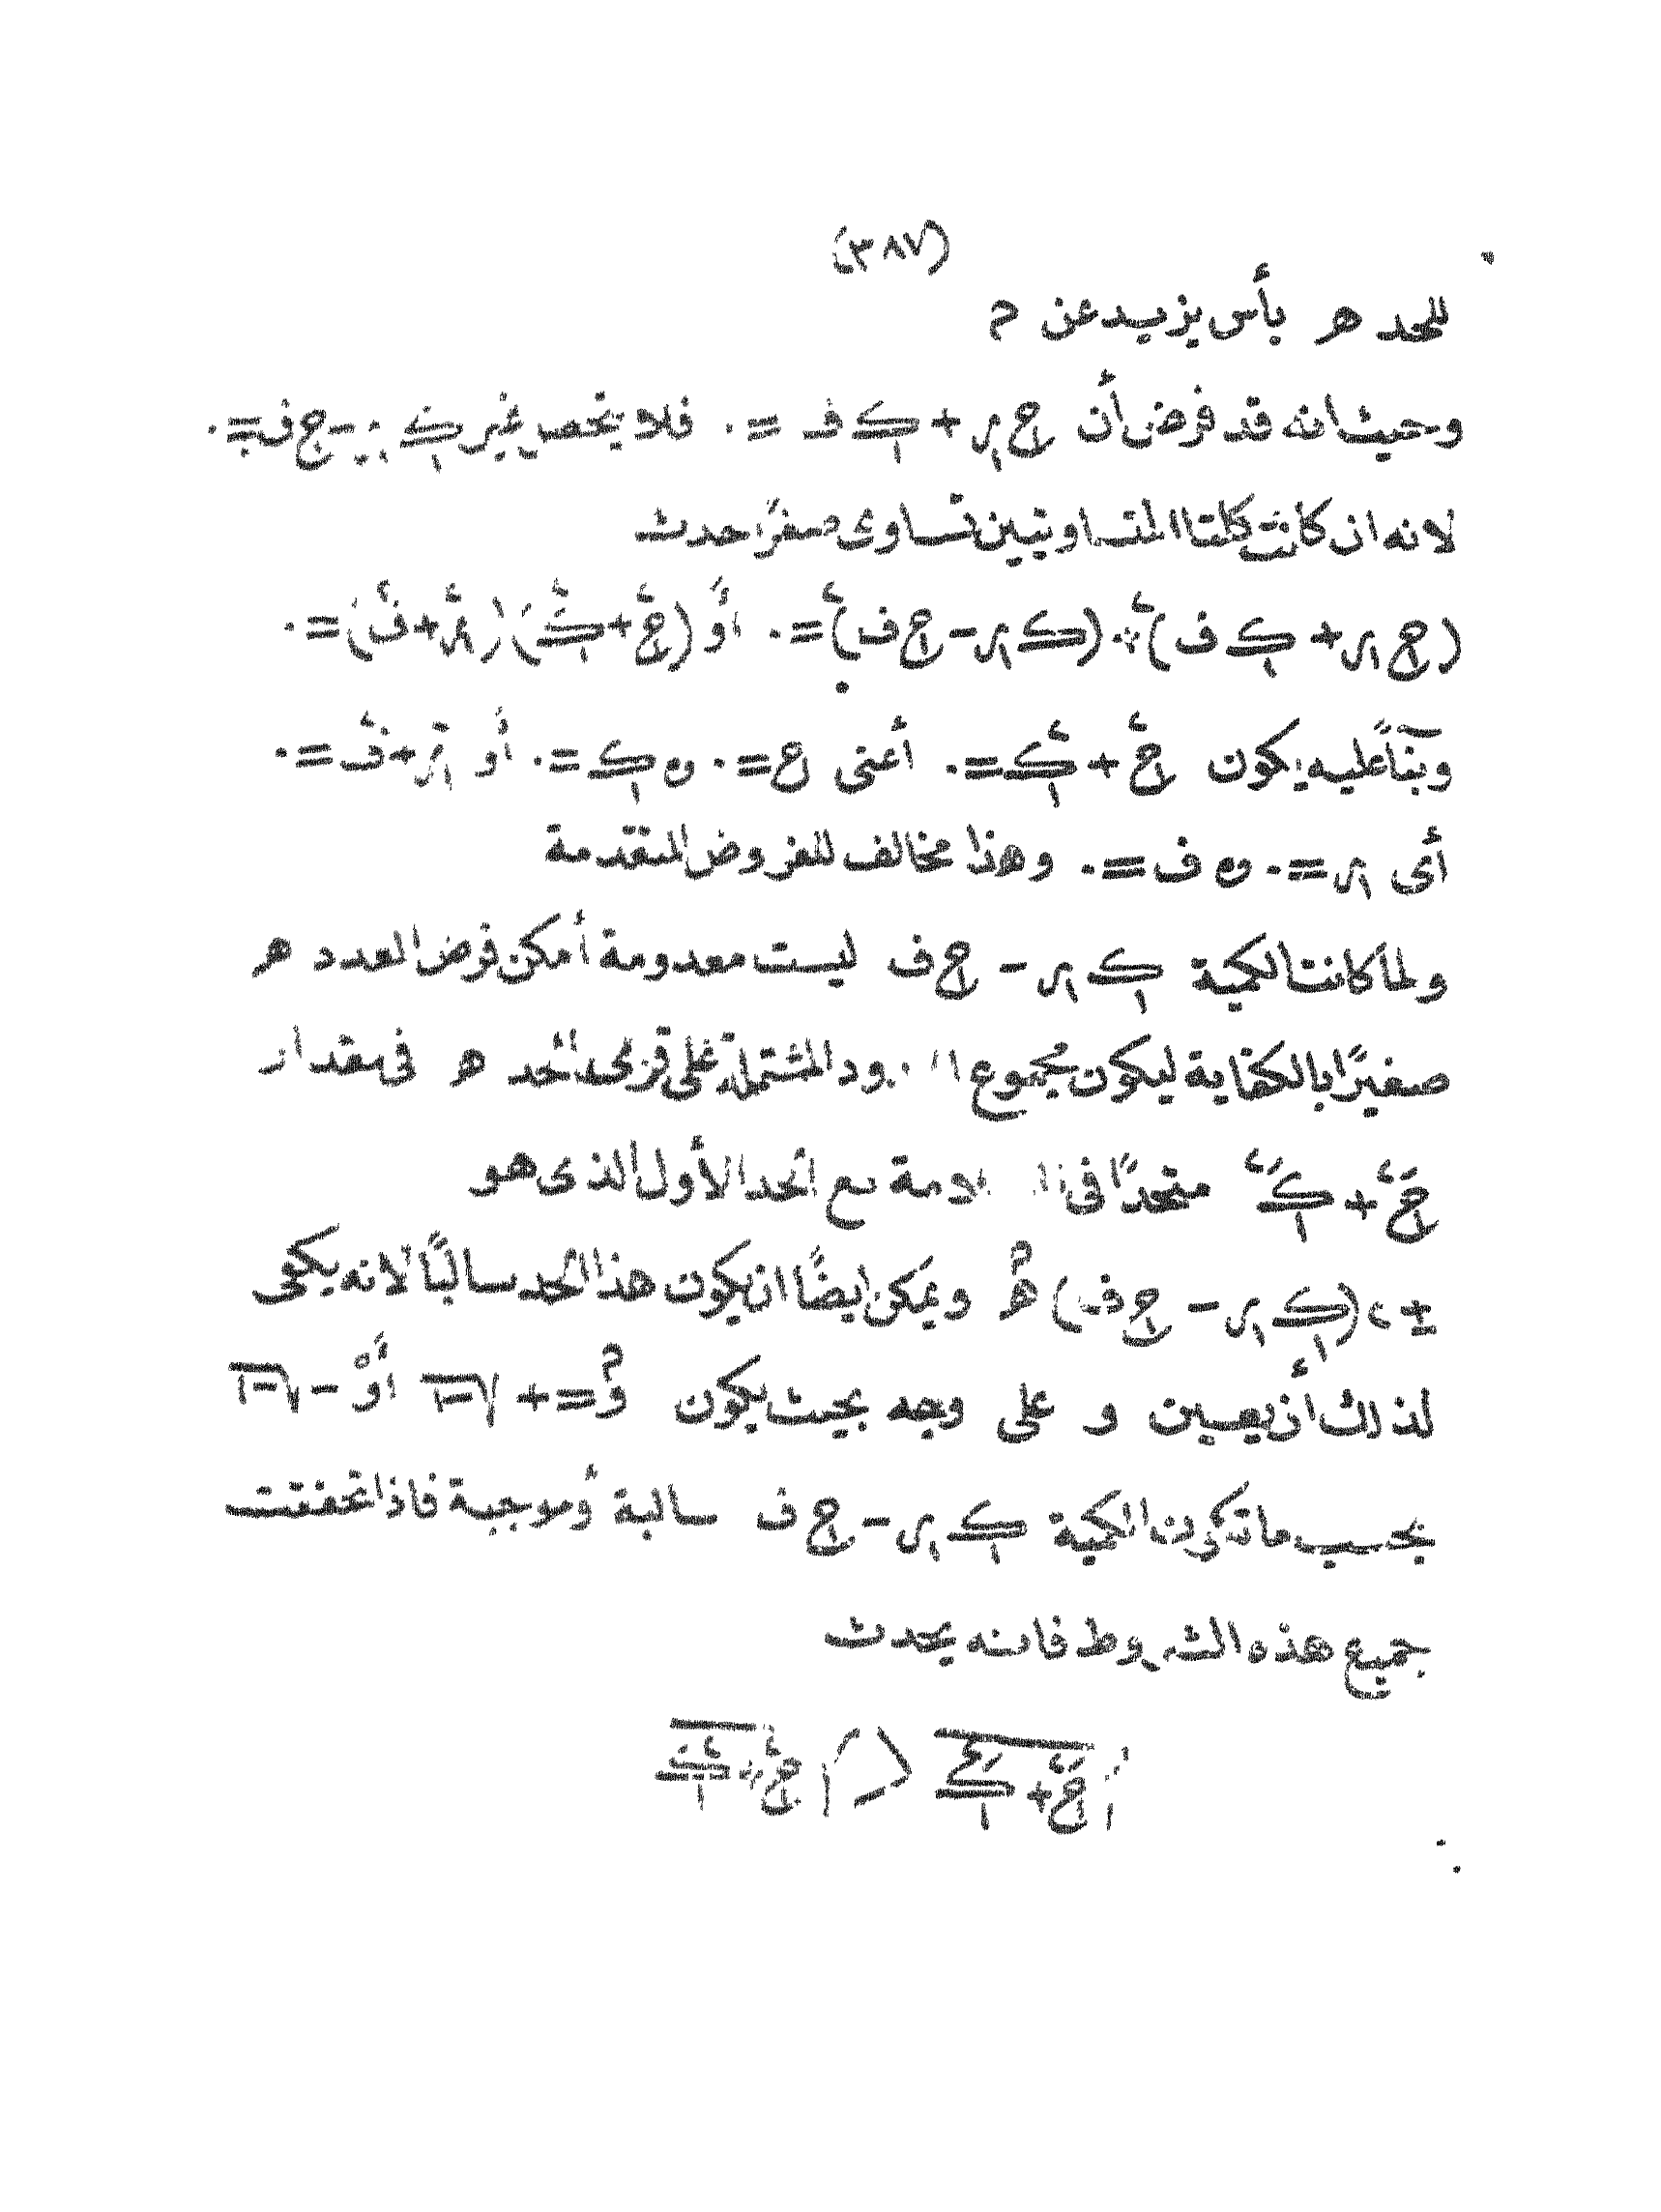 (٣٨٧)
للحد ﻫ بأس يزيد عن م
وحيث انه قد فرض أن ج ر + ك ف = ٠ فلا يخص غير ك ر - ج ف = ٠
لانه ان كانت كلتا المتساويتين تساوى صفرًا حدث
(ج ر + ك ف)٢ + (ك ر - ج ف)٢ = ٠ أو (ج٢ + ك٢) (ر٢ + ف٢) = ٠
وبناً عليه يكون ج٢ + ك٢ = ٠ أعنى ج = ٠ و ك = ٠ أو ر٢ + ف٢ = ٠
أى ر = ٠ و ف = ٠ وهذا مخالف للفروض المتقدمة
ولما كانت الكمية ك ر - ج ف ليست معدومة أمكن فرض العدد ﻫ
صغيرًا بالكفاية ليكون مجموع المشتملة على قوى الحد ﻫ فى مقدار
جَ٢ + كَ٢ متحدًا فى مع الحد الأول الذى هو
± ٢ (ك ر - ج ف) ﻫم ويمكن ايضًا ان يكون هذا الحد سالبًا لانه يكفى
لذلك أن يعين و على وجه بحيث يكون وم = + √-١ أو - √-١
بحسب ما تكون الكمية ك ر - ج ف سالبة أو موجبة فاذا تحققت
جميع هذه الشروط فانه يحدث
√جَ٢ + كَ٢ < √ج٢ + ك٢